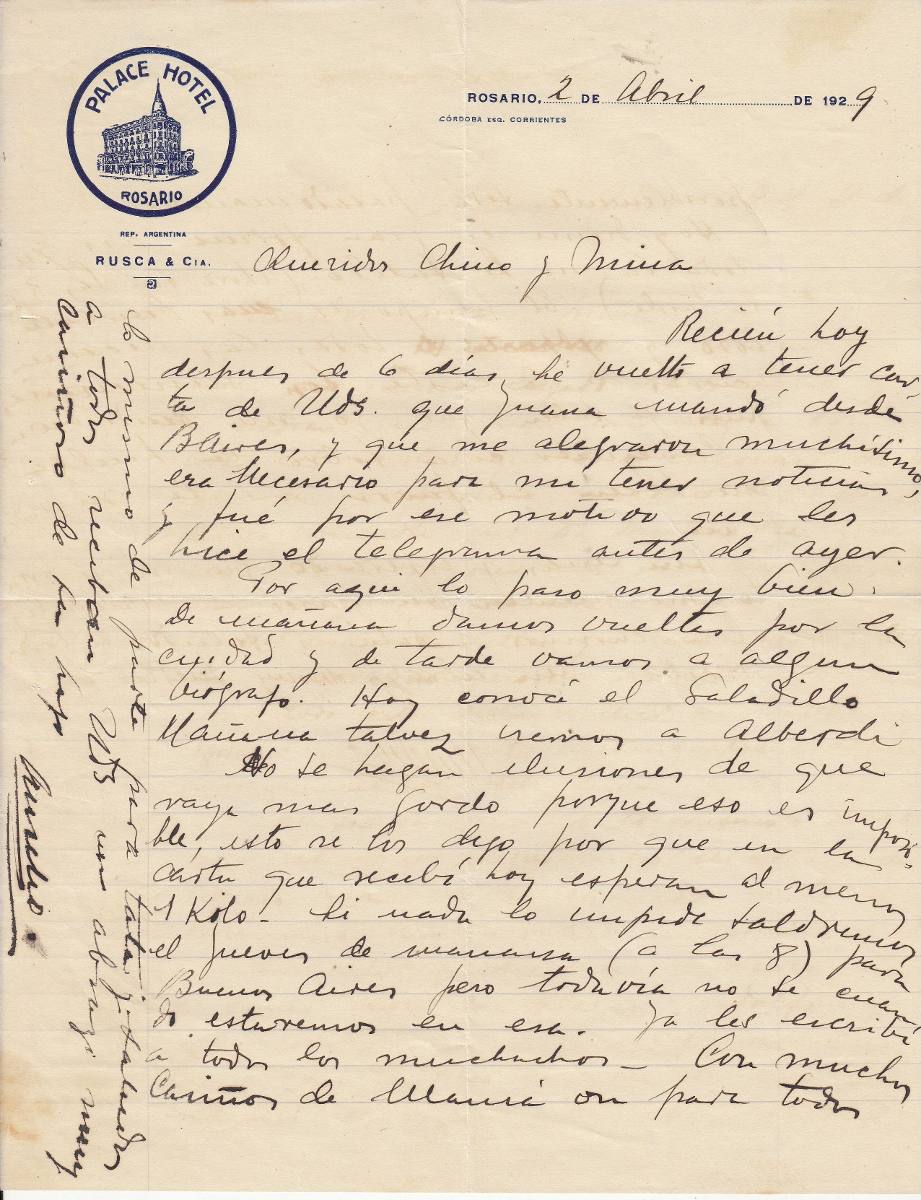 PALACE HOTEL
ROSARIO
REP. ARGENTINA
RUSCA & CIA.
ROSARIO, 2 DE Abril DE 1929
CÓRDOBA ESQ. CORRIENTES
Queridos Chino y Mina
Recién hoy
despues de 6 días, he vuelto a tener car-
ta de Uds. que Juana mandó desde
BAires, y que me alegraron muchísimo,
era necesario para mi tener noticias,
y fué por ese motivo que les
hice el telegrama antes de ayer.
Por aqui lo paso muy bien.
De mañana damos vueltas por la
ciudad y de tarde vamos a algun
biógrafo. Hoy conocí el Saladillo
Mañana talvez iremos a Alberdi
No se hagan ilusiones de que
vaya mas gordo porque eso es imposi-
ble, esto se los digo por que en la
carta que recibí hoy esperan al menos
1 Kilo - Si nada lo impide saldremos
el jueves de manana (a las 8) para
Buenos Aires pero todavía no se cuan-
do estaremos en esa. Ya les escribí
a todos los muchachos - Con muchos
Cariños de Mamá para todos
lo mismo de parte para tata y saludos
a todos reciban Uds un abrazo muy
cariñoso de su hijo
Aurelio.